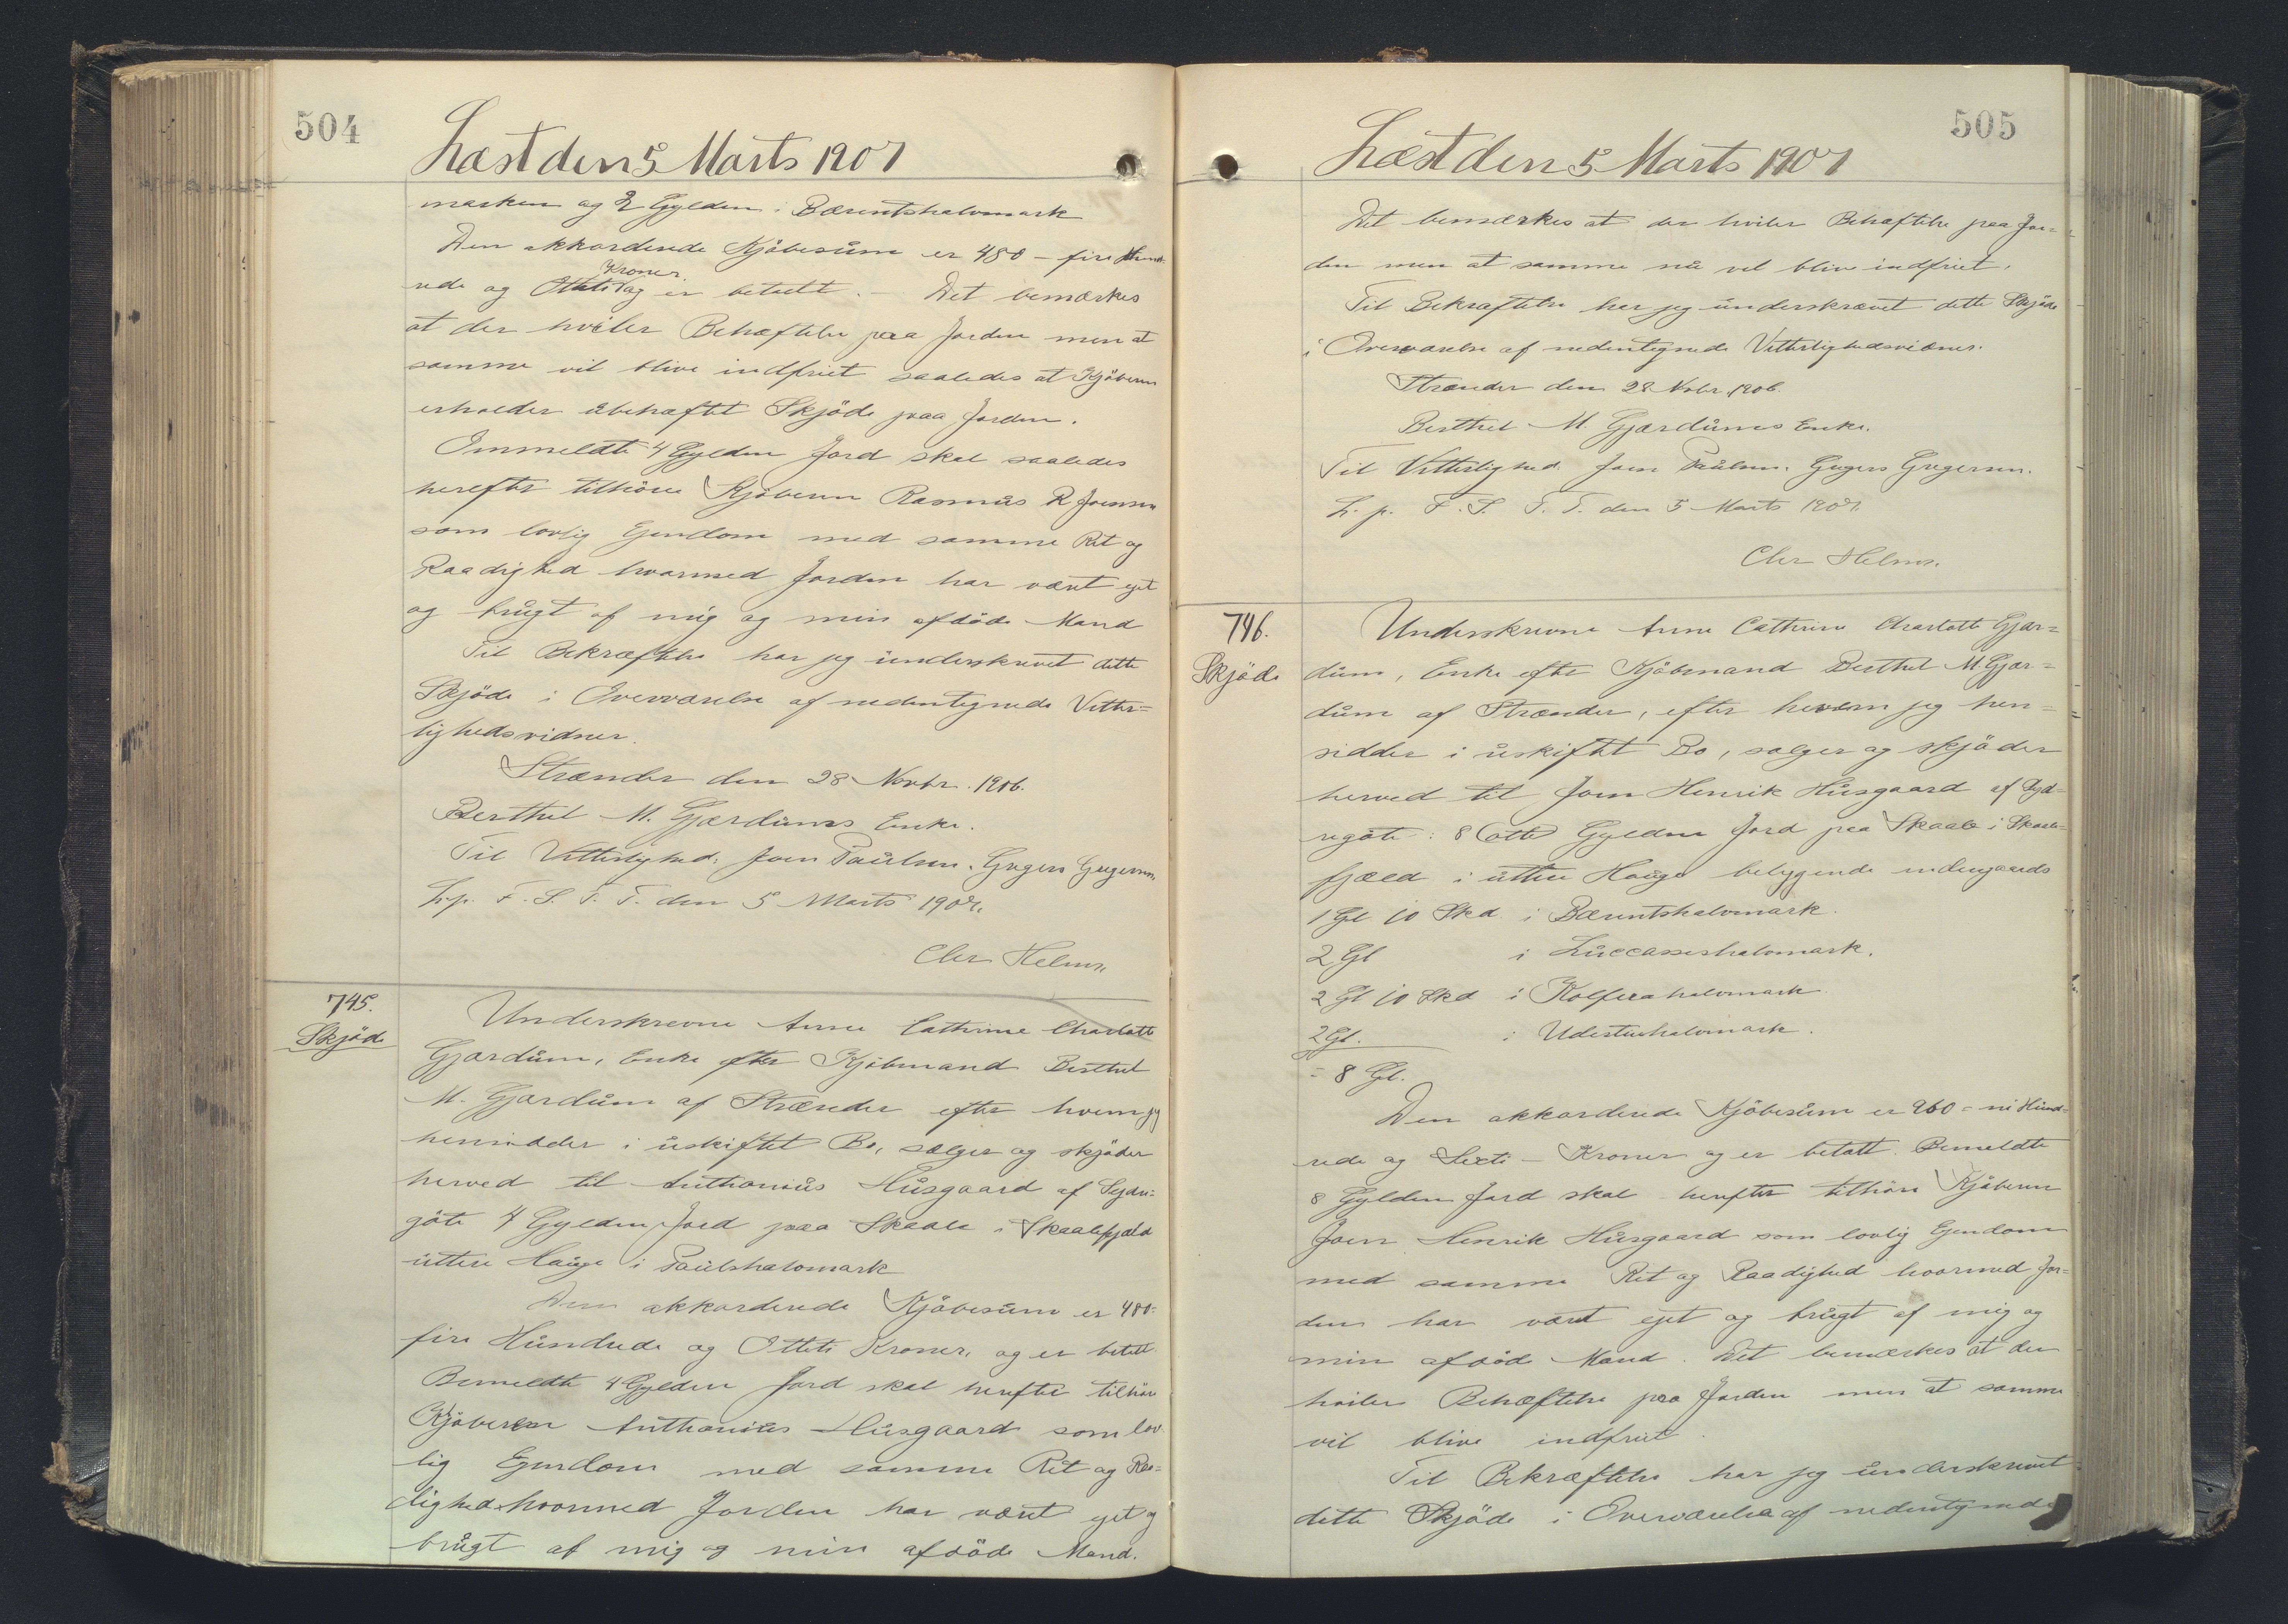 504
Læst den 5 Marts 1907
marken og 2 Gylden i Bærentshalvmark
Den akkorderede Kjöbesum er 480 – fire Hund-
rede og Otteti Kroner og er betalt. – Det bemærkes
at der hviler Behæftelse paa Jorden men at
samme vil blive indfriet saaledes at Kjöberen
erholder ubehæftet Skjöde paa Jorden.
Ommeldte 4 Gylden Jord skal saaledes
herefter tilhöre Kjöberen Rasmus R Joensen
som lovlig Ejendom med samme Ret og
Raadighed hvormed Jorden har været ejet
og brugt af mig og min afdöde Mand
Til Bekræftelse har jeg underskrevet dette
Skjöde i Overværelse af nedentegnede Vitter=
lighedsvidner.
Strænder den 28 Novbr. 1906.
Berthel M. Gjærdums Enke.
Til Vitterlighed. Joen Paulsen. Gregers Gregersen.
L. p. F. S. T. T. den 5 Marts 1907.
Chr Helms.
745.
Skjöde
Underskrevne Anne Cathrine Charlotte
Gjærdum, Enke efter Kjöbmand Berthel
M. Gjærdum af Strænder efter hvem jeg
hensidder i uskiftet Bo, sælger og skjöder
herved til Anthonius Husgaard af Sydre=
göte 4 Gylden Jord paa Skaale i Skaalefjæld
uttere Hauge i Paulshalvmark
Den akkorderede Kjöbesum er 480=
fire Hundrede og Otteti Kroner, og er betalt
Bemeldte 4 Gylden Jord skal herefter tilhöre
Kjöberen Anthonius Husgaard som lov-
lig Ejendom med samme Ret og Raa=
dighed hvormed Jorden har været ejet og
brugt af mig og min afdöde Mand.
505
Læst den 5 Marts 1907
Det bemærkes at der hviler Behæftelse paa Jor=
den men at samme nu vil blive indfriet.
Til Bekræftelse har jeg underskrevet dette Skjöde
i Overværelse af nedentegnede Vitterlighedsvidner.
Strænder den 28 Novbr. 1906.
Berthel M. Gjærdums Enke.
Til Vitterlighed. Joen Paulsen. Gregers Gregersen.
L. p. F. S. T. T. den 5 Marts 1907.
Chr Helms.
746.
Skjöde
Underskrevne Anne Cathrine Charlotte Gjær=
dum, Enke efter Kjöbmand Berthel M. Gjær=
dum af Strænder, efter hvem jeg hen=
sidder i uskiftet Bo, sælger og skjöder
herved til Joen Henrik Husgaard af Syd=
regöte: 8 (otte) Gylden Jord paa Skaale i Skaale=
fjæld i uttere Hauge beliggende indengaards
1 Gl 10 Skd i Bærentshalvmark.
2 Gl i Luccasseshalvmark.
2 Gl 10 Skd i Kolferahalvmark
2 Gl. i Udestuehalvmark.
= 8 Gl.
Den akkorderede Kjöbesum er 960 = ni Hund=
rede og Sexti – Kroner og er betalt. Bemeldte
8 Gylden Jord skal herefter tilhöre Kjöberen
Joen Henrik Husgaard som lovlig Ejendom
med samme Ret og Raadighed hvormed Jor=
den har været ejet og brugt af mig og
min afdöde Mand. Det bemærkes at der
hviler Behæftelse paa Jorden men at samme
vil blive indfriet.
Til Bekræftelse har jeg underskrevet
dette Skjöde i Overværelse af nedentegnede